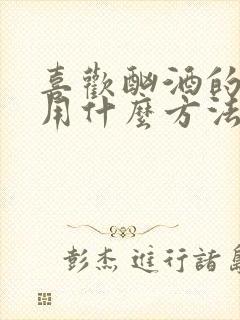 喜歡酗酒的
用什麼方法
彭杰 進行諸